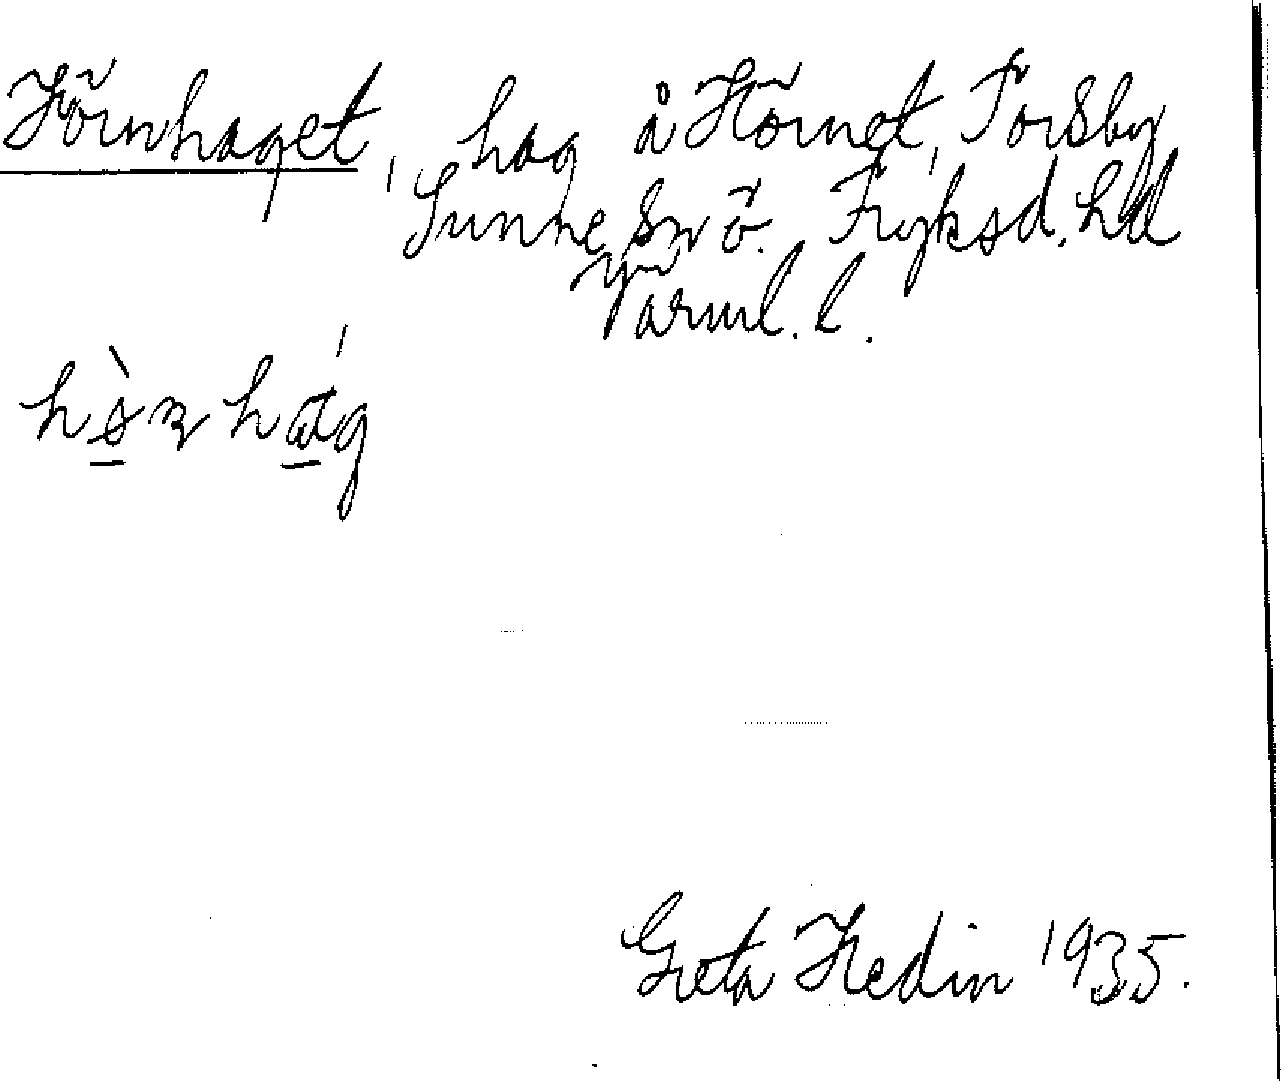 Hörnhaget, hag å Hörnet, Torsby,
Sunne sn ö. Fryksd. hd
Värml. l.
Greta Hedin 1935.